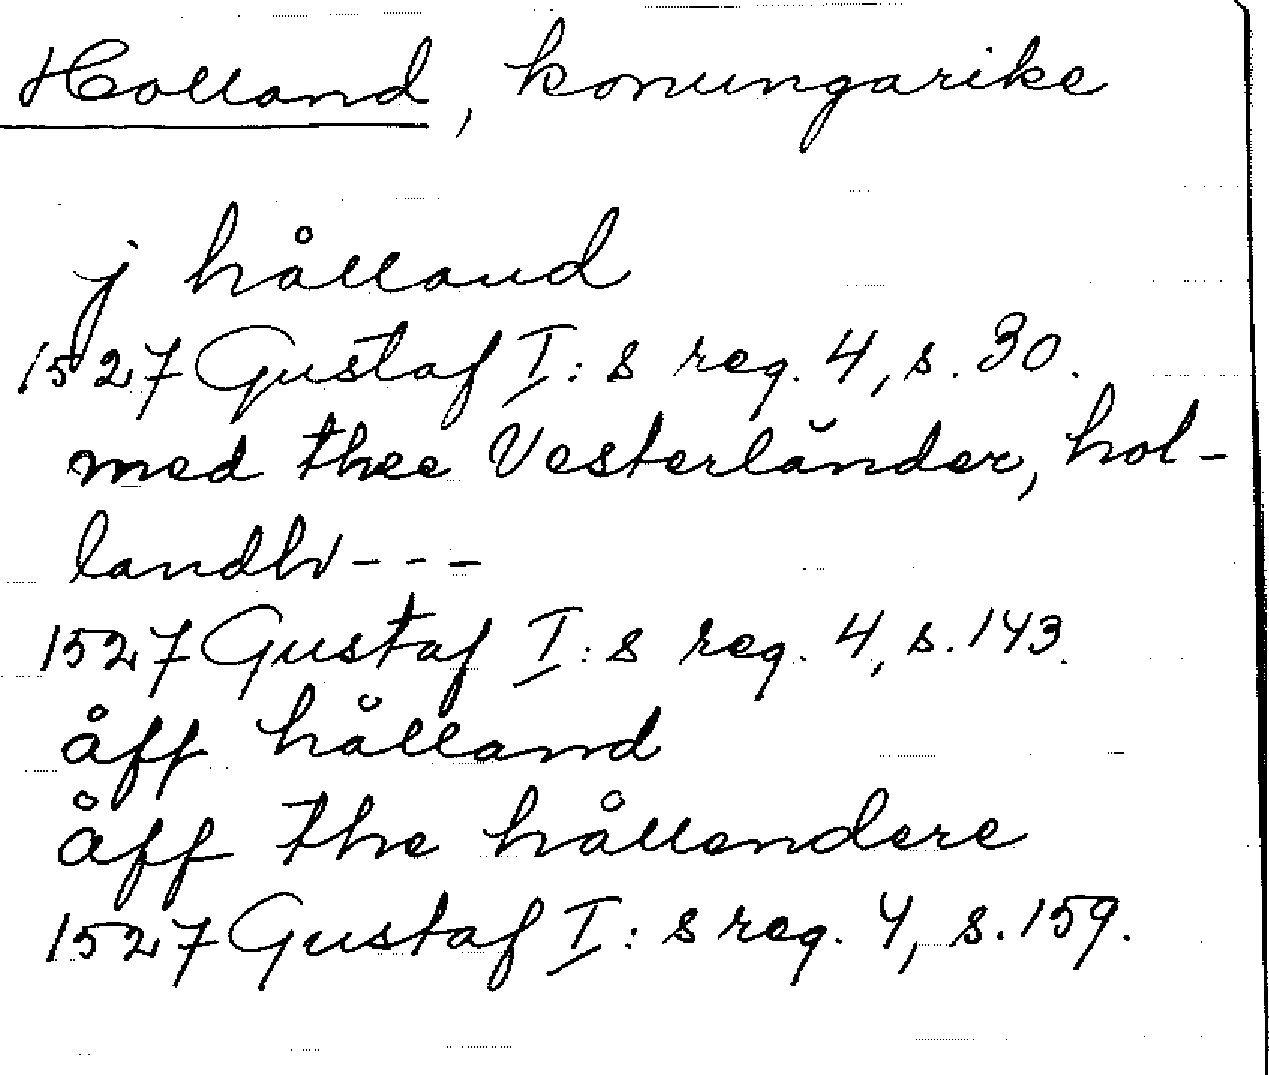 Holland, konungarike
j hålland
1527 Gustaf I:s reg. 4, s. 30.
med thee Vesterländer, hol-
landh ---
1527 Gustaf I:s reg. 4, s. 143.
åff hålland
åff the hållendere
1527 Gustaf I:s reg. 4, s. 159.